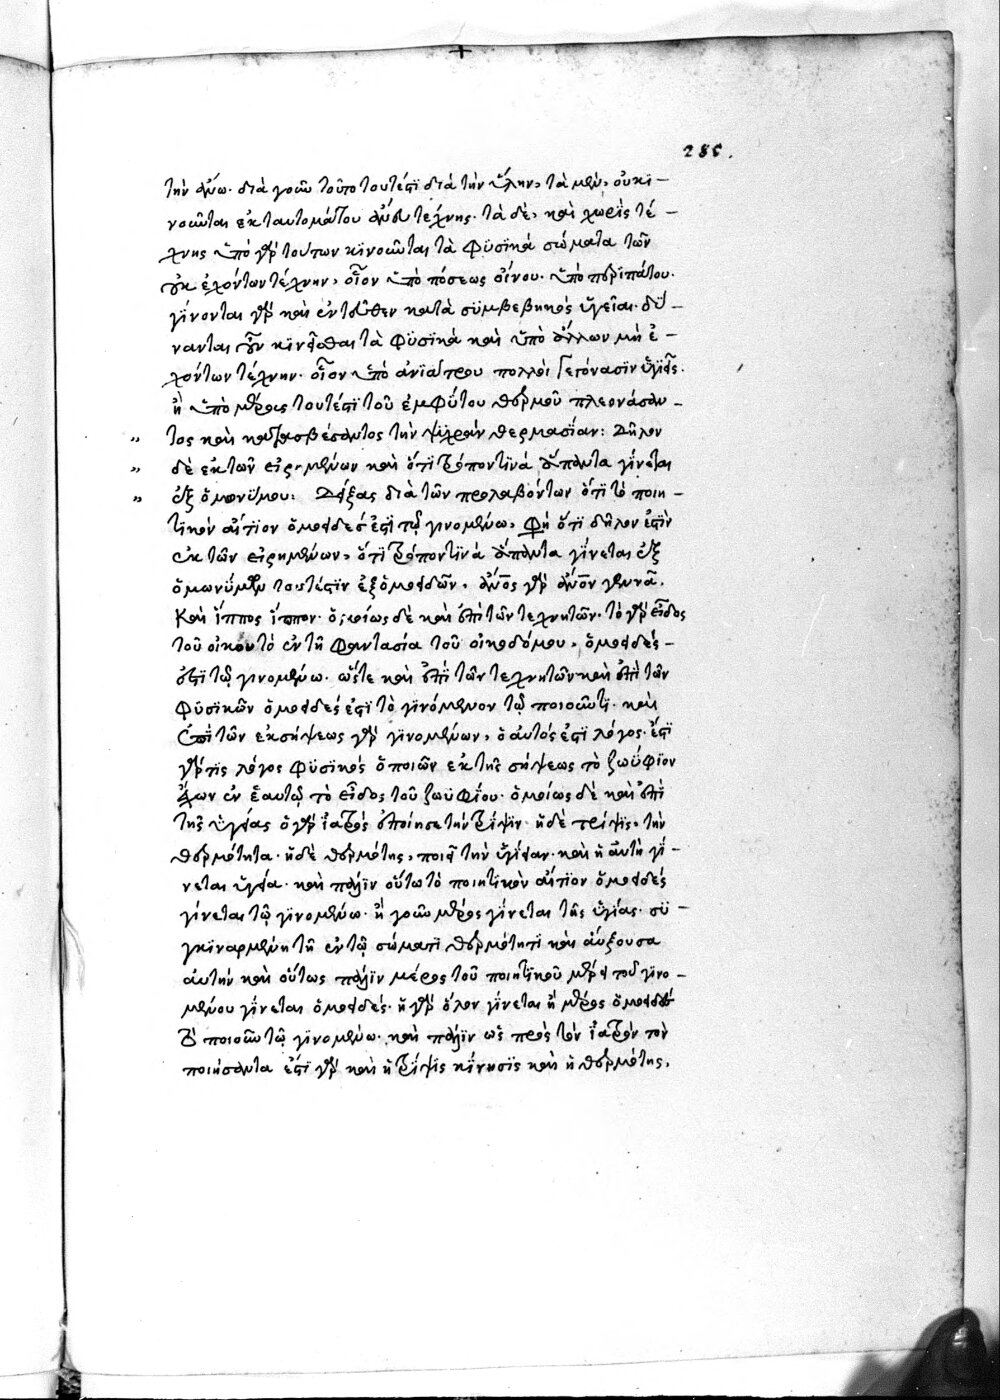 285.
τὴν ἄνω. διὰ γοῦν τοῦτο τουτέστι διὰ τὴν ὕλην, τὰ μὲν, οὐ κϊ-
νοῦνται ἐκ ταυτομάτου ἄνευ τέχνης. τὰ δὲ, καὶ χωρὶς τέ-
χνης ὑπὸ γὰρ τούτων κϊνοῦνται τὰ φϋσϊκὰ σώματα τῶν
οὐκ ἐχόντων τέχνην, οἷον ὑπὸ πόσεως οἴνου. ὑπὸ περϊπάτου.
γίνονται γὰρ καὶ ἐντεῦθεν κατὰ συμβεβηκὸς ὑγεῖαι. δύ-
νανται οὖν κϊνεῖσθαι τὰ φϋσϊκὰ καὶ ὑπὸ ἄλλων μὴ ἐ-
χόντων τέχνην. οἷον ὑπὸ ἀνϊάτρου πολλοὶ γεγόνασϊν ὑγιεῖς.
ἢ ὑπὸ μέρους τουτέστι τοῦ ἐμφύτου θερμοῦ πλεονάσαν-
τος καὶ κατασβέσαντος τὴν ψϋχρὰν θερμασίαν: Δῆλον
δὲ ἐκ τῶν εἰρημένων καὶ ὅτϊ τρόπον τϊνὰ ἅπαντα γίνεται
ἐξ ὁμωνύμου: Δείξας διὰ τῶν προλαβόντων ὅτϊ τὸ ποιη-
τϊκὸν αἴτϊον ὁμοειδές ἐστϊ τῷ γινομένω, φησὶ ὅτϊ δῆλον ἐστὶν
ἐκ τῶν εἰρημένων, ὅτϊ τρόπον τϊνὰ ἅπαντα γίνεται ἐξ
ὁμωνύμων τουτέστϊν ἐξ ὁμοειδῶν. ἄνος γὰρ ἄνον γεννᾶ.
Καὶ ἵππος ἵππον. ὁμοίως δὲ καὶ ἐπὶ τῶν τεχνητῶν. τὸ γὰρ εἶδος
τοῦ οἴκου τὸ ἐν τῇ φαντασία τοῦ οἰκοδόμου, ὁμοειδές-
ἐστϊ τῷ γινομένω. ὥστε καὶ ἐπὶ τῶν τεχνητῶν καὶ ἐπὶ τῶν
φϋσϊκῶν ὁμοειδές ἐστϊ τὸ γϊνόμενον τῷ ποιοῦντϊ. καὶ
ἐπὶ τῶν ἐκ σήψεως γὰρ γϊνομένων, ὁ αὐτός ἐστϊ λόγος. ἔστϊ
γάρ τϊς λόγος φϋσϊκὸς ὁ ποιῶν ἐκ τῆς σήψεως τὸ ζωΰφϊον
ἔχων ἐν ἑαυτῷ τὸ εἶδος τοῦ ζωϋφΐου. ὁμοίως δὲ καὶ ἐπὶ
τῆς ὑγείας ὁ γὰρ ἰατρὸς ἐποίησε τὴν τρῖψϊν. ἡ δὲ τρίψϊς, τὴν
θερμότητα. ἡ δὲ θερμότης, ποιεῖ τὴν ὑγίειαν. καὶ ἡ αὐτὴ γΐ-
νεται ὑγεία. καὶ πάλϊν οὕτω τὸ ποιητϊκὸν αἴτϊον ὁμοειδές
γίνεται τῷ γϊνομένω. ἢ γοῦν μέρος γίνεται τῆς ὑγίας. σϋ-
γκϊναρμένη τῆ ἐν τῷ σώματϊ θερμότητϊ καὶ αὔξουσα
αὐτὴν καὶ οὕτως πάλϊν μέρος τοῦ ποιητϊκοῦ μέρει τοῦ γϊνο-
μένου γίνεται ὁμοειδές. ἢ γὰρ ὅλον γίνεται ἢ μέρος ὁμοειδὲς
τὸ ποιοῦν τῷ γϊνομένω. καὶ πάλϊν ὡς πρὸς τὸν ἰατρὸν τὸν
ποιήσαντα ἔστϊ γὰρ καὶ ἡ τρΐψϊς κΐνησϊς καὶ ἡ θερμότης,